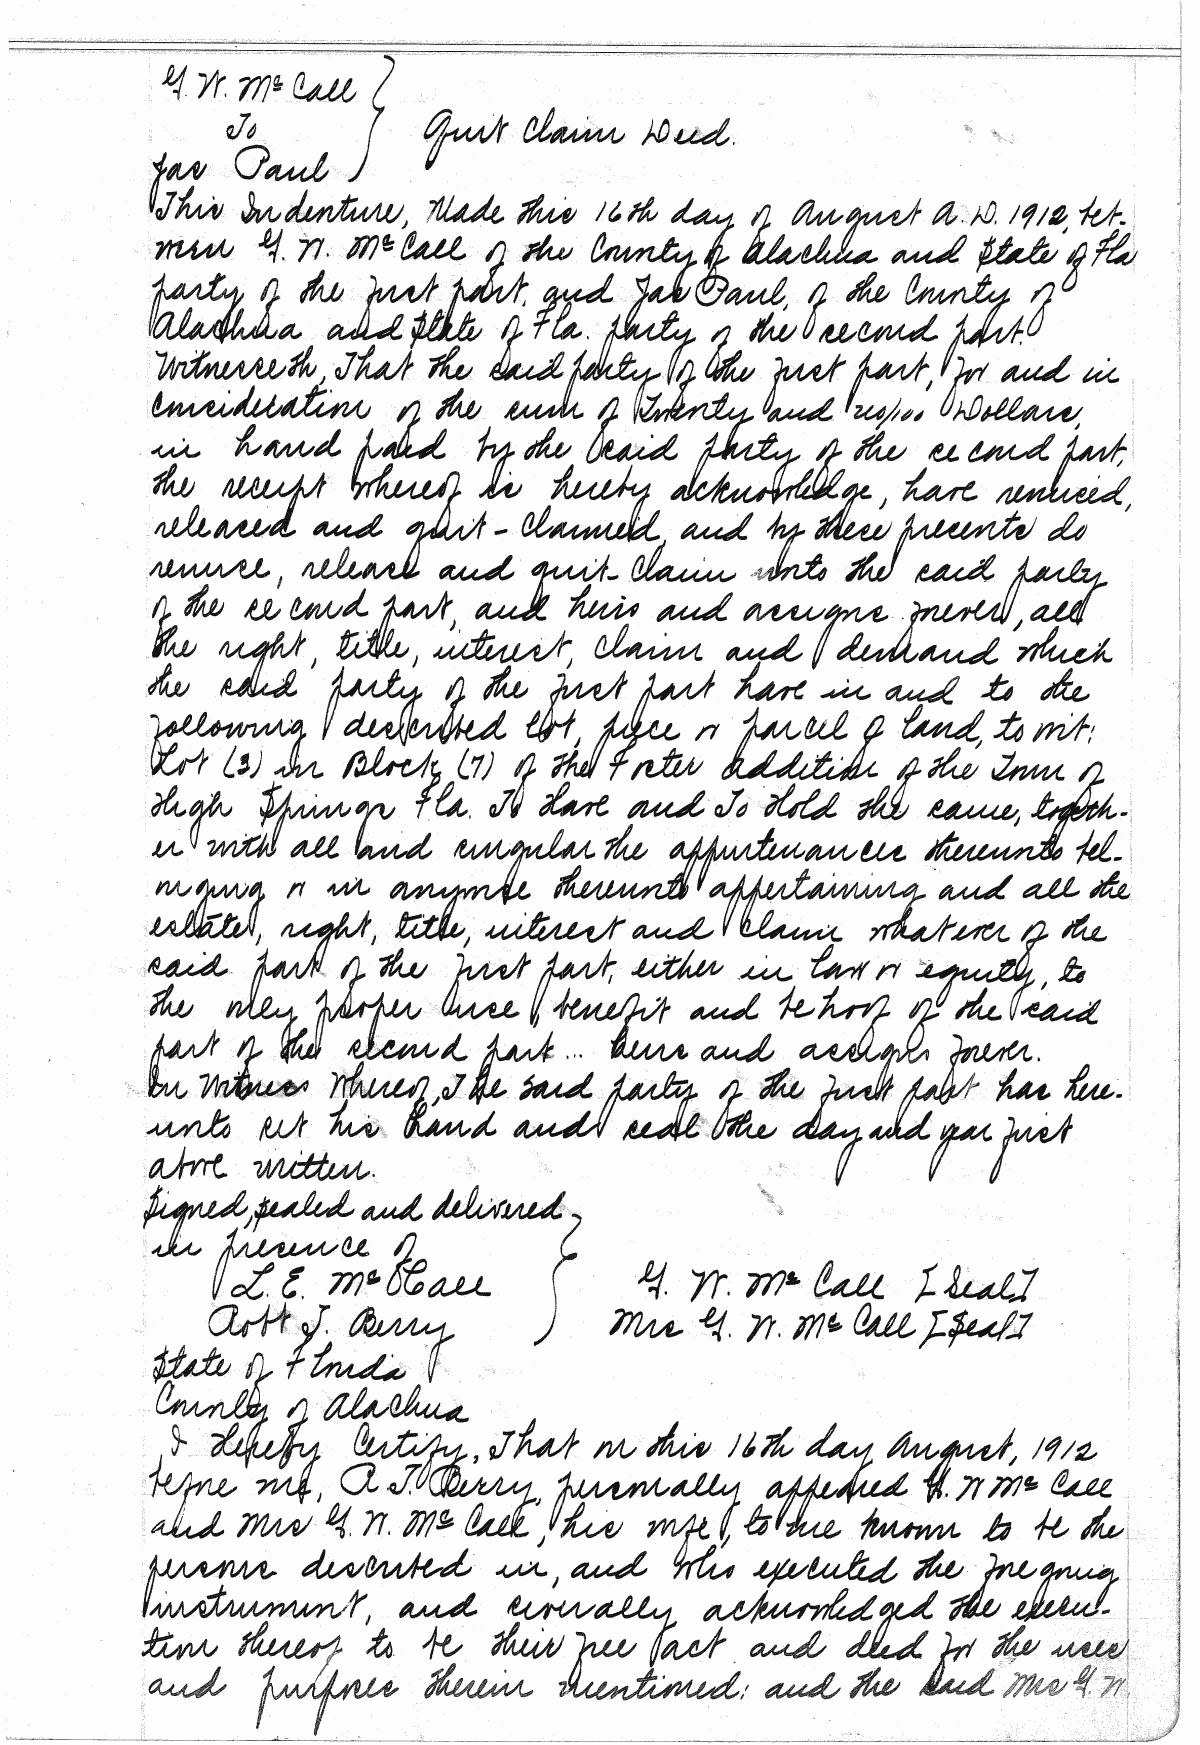 G. W. McCall
To
Jas Paul
Quit Claim Deed.
This Indenture, Made this 16th day of August A. D. 1912, bet-
ween G. W. McCall of the County of Alachua and State of Fla
party of the first part, and Jas Paul, of the County of
Alachua and State of Fla. party of the second part.
Witnesseth, That the said party of the first part, for and in
consideration of the sum of Twenty and no/100 Dollars,
in hand paid by the said party of the second part,
the receipt whereof is hereby acknowledge, have remised,
released and quit-claimed, and by these presents do
remise, release and quit-claim unto the said party
of the second part, and heirs and assigns forever, all
the right, title, interest, claim and demand which
the said party of the first part have in and to the
following described lot, piece or parcel of land, to wit:
Lot (3) in Block (7) of the Foster addition of the Town of
High Springs Fla. To Have and To Hold the same, togeth-
er with all and singular the appurtenances thereunto bel-
onging or in anywise thereunto appertaining and all the
estate, right, title, interest and claim whatever of the
said part of the first part, either in law or equity, to
the only proper use, benefit and behoof of the said
part of the second part... heirs and assigns forever.
In Witness Whereof, The said party of the first part has here-
unto set his hand and seal the day and year first
above written.
Signed, sealed and delivered
in presence of
L. E. McCall
Robt J. Berry
G. W. McCall [Seal]
Mrs G. W. McCall [Seal]
State of Florida
County of Alachua
I Hereby Certify, That on this 16th day August, 1912
before me, R J. Berry, personally appeared G. W McCall
and Mrs G. W. McCall, his wife, to me known to be the
persons described in, and who executed the foregoing
instrument, and severally acknowledged the execu-
tion thereof to be their free act and deed for the uses
and purposes therein mentioned: and the said Mrs G. W